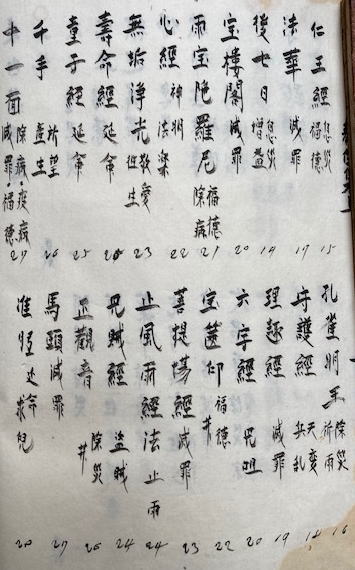 仁王經 息災 福德 15
法華 滅罪 17
後七日 息災 增益 19
宝樓閣 滅罪 20
雨宝陀羅尼 福德 除病 21
心經 神明 法楽 22
無垢淨光 敬愛 23
壽命經 延命
童子經 延命 25
千手 所望 26
十一面 除病・疫病 滅罪・福德 27
孔雀明王 除災 祈雨 16
守護經 天変 兵乱 18
理趣經 滅罪 19
六字經 咒咀 20
宝篋印 福德 22
菩提場經 滅罪 23
止風雨經法 止雨 24
咒賊經 盗賊 24
正觀音 除災 26
馬頭 滅罪 27
准胝 延命 求児 28